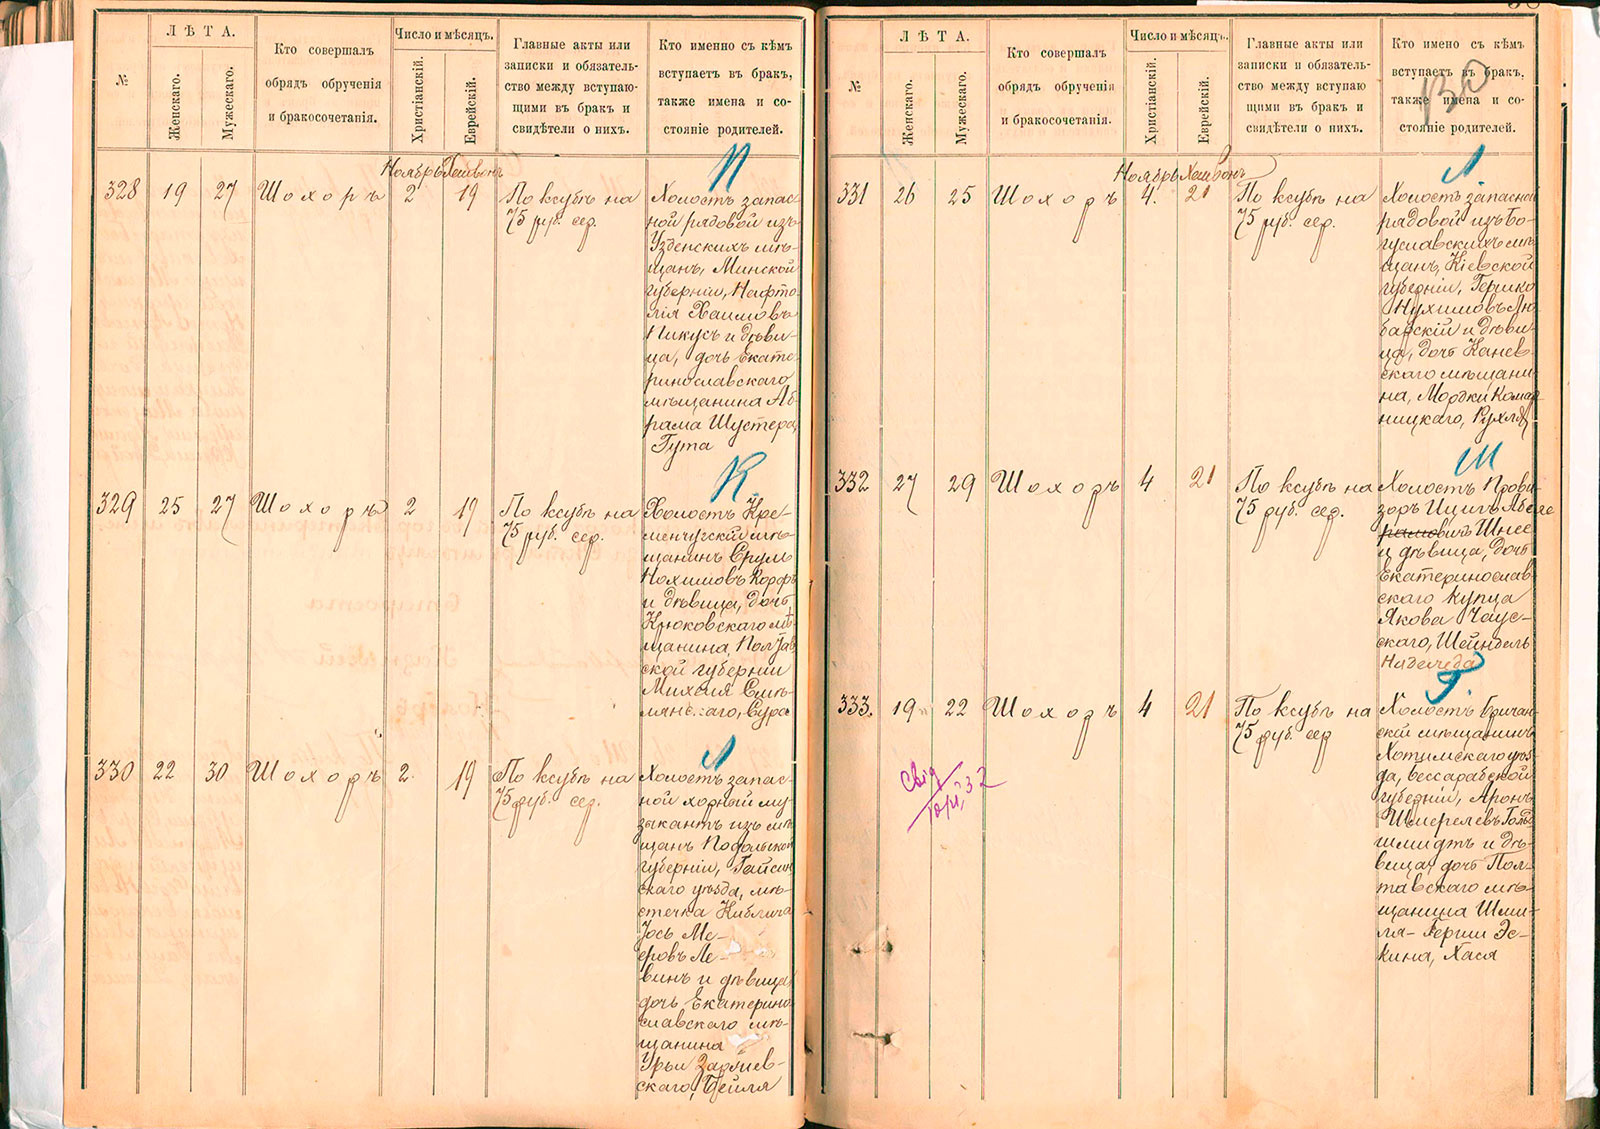 №
ЛѢТА.
Женскаго.
Мужескаго.
Кто совершалъ
обрядъ обрученія
и бракосочетанія.
Число и мѣсяцъ.
Христіанскій.
Еврейскій.
Главные акты или
записки и обязатель-
ство между вступаю-
щими въ бракъ и
свидѣтели о нихъ.
Кто именно съ кѣмъ
вступаетъ въ бракъ,
также имена и со-
стояніе родителей.
Ноябрь Хешвонъ
П
328 19 27 Шохоръ 2 19
По ксубѣ на
75 руб. сер.
Холостъ запас-
ной рядовой изъ
Узденскихъ мѣ-
щанъ, Минской
губерніи, Нафто-
лія Хаимовъ
Пикусъ и дѣви-
ца, дочь Екате-
ринославскаго
мѣщанина Аб-
рама Шустера,
Гута
К.
329 25 27 Шохоръ 2 19
По ксубѣ на
75 руб. сер.
Холостъ Кре-
менчугскій мѣ-
щанинъ Сруль
Нохимовъ Корфъ
и дѣвица, дочь
Крюковскаго мѣ-
щанина, Полтав
ской губерніи
Михеля Смѣ-
лянс..аго, Сура
Л
330 22 30 Шохоръ 2. 19
По ксубѣ на
75 руб. сер.
Холостъ запас-
ной хорный му-
зыкантъ изъ мѣ-
щанъ Подольской
губерніи, Гайсин
скаго уѣзда, мѣ-
стечка Киблича
Іось Ме-
еровъ Ле-
винъ и дѣвица,
дочь Екатерино
славскаго мѣ-
щанина
Урьи
скаго, Бейля
130
№
ЛѢТА.
Женскаго.
Мужескаго.
Кто совершалъ
обрядъ обрученія
и бракосочетанія.
Число и мѣсяцъ.
Христіанскій.
Еврейскій.
Главные акты или
записки и обязатель-
ство между вступаю
щими въ бракъ и
свидѣтели о нихъ.
Кто имено съ кѣмъ
вступаетъ въ бракъ,
также имена и со-
стояніе родителей.
Ноябрь Хешвонъ
Л
331 26 25 Шохоръ 4. 21
По ксубѣ на
75 руб. сер.
Холостъ запасной
рядовой изъ Бо-
гуславскихъ мѣ
щанъ, Кіевской
губерніи, Гершко
Нухимовъ Лю-
барскій и дѣви-
ца, дочь Канев-
скаго мѣщани-
на, Мордки Комар
ницкаго, Рухля
Ш
332 27 29 Шохоръ 4 21
По ксубѣ на
75 руб. сер.
Холостъ Прови-
зоръ Ицигъ Абеле
рамовичъ Шнее
и дѣвица, дочь
Екатеринослав-
скаго купца
Якова Чаус-
скаго, Шейндель
Надежда
Г.
333. 19 22 Шохоръ 4 21
По ксубѣ на
75 руб. сер
Холостъ Бричан-
скій мѣщанинъ
Хотимскаго уѣз-
да, бессарабской
губерніи, Аронъ
Шмерелевъ Гольд
шмидтъ и дѣ-
вица, дочь Пол-
тавскаго мѣ-
щанина Шми-
ля-Герши Эс-
кина, Хася
свід
32